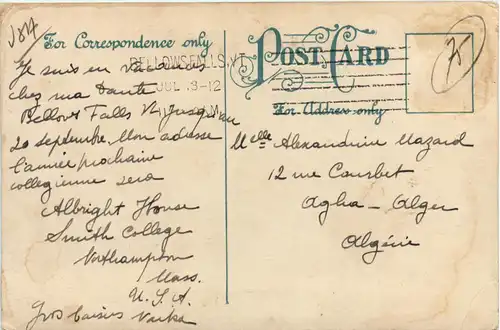 For Correspondence only
POST CARD
For Address only
BELLOWS FALLS, VT.
JUL 3-12
Je suis en vacances
chez ma tante
Bellows Falls Vt jusqu'au
20 septembre. Mon adresse
l'année prochaine
collegienne sera
Albright House
Smith College
Northampton
Mass.
U.S.A
Gros baisers
Melle Alexandrine Mazard
12 rue Courbet
Agha-Alger
Algérie